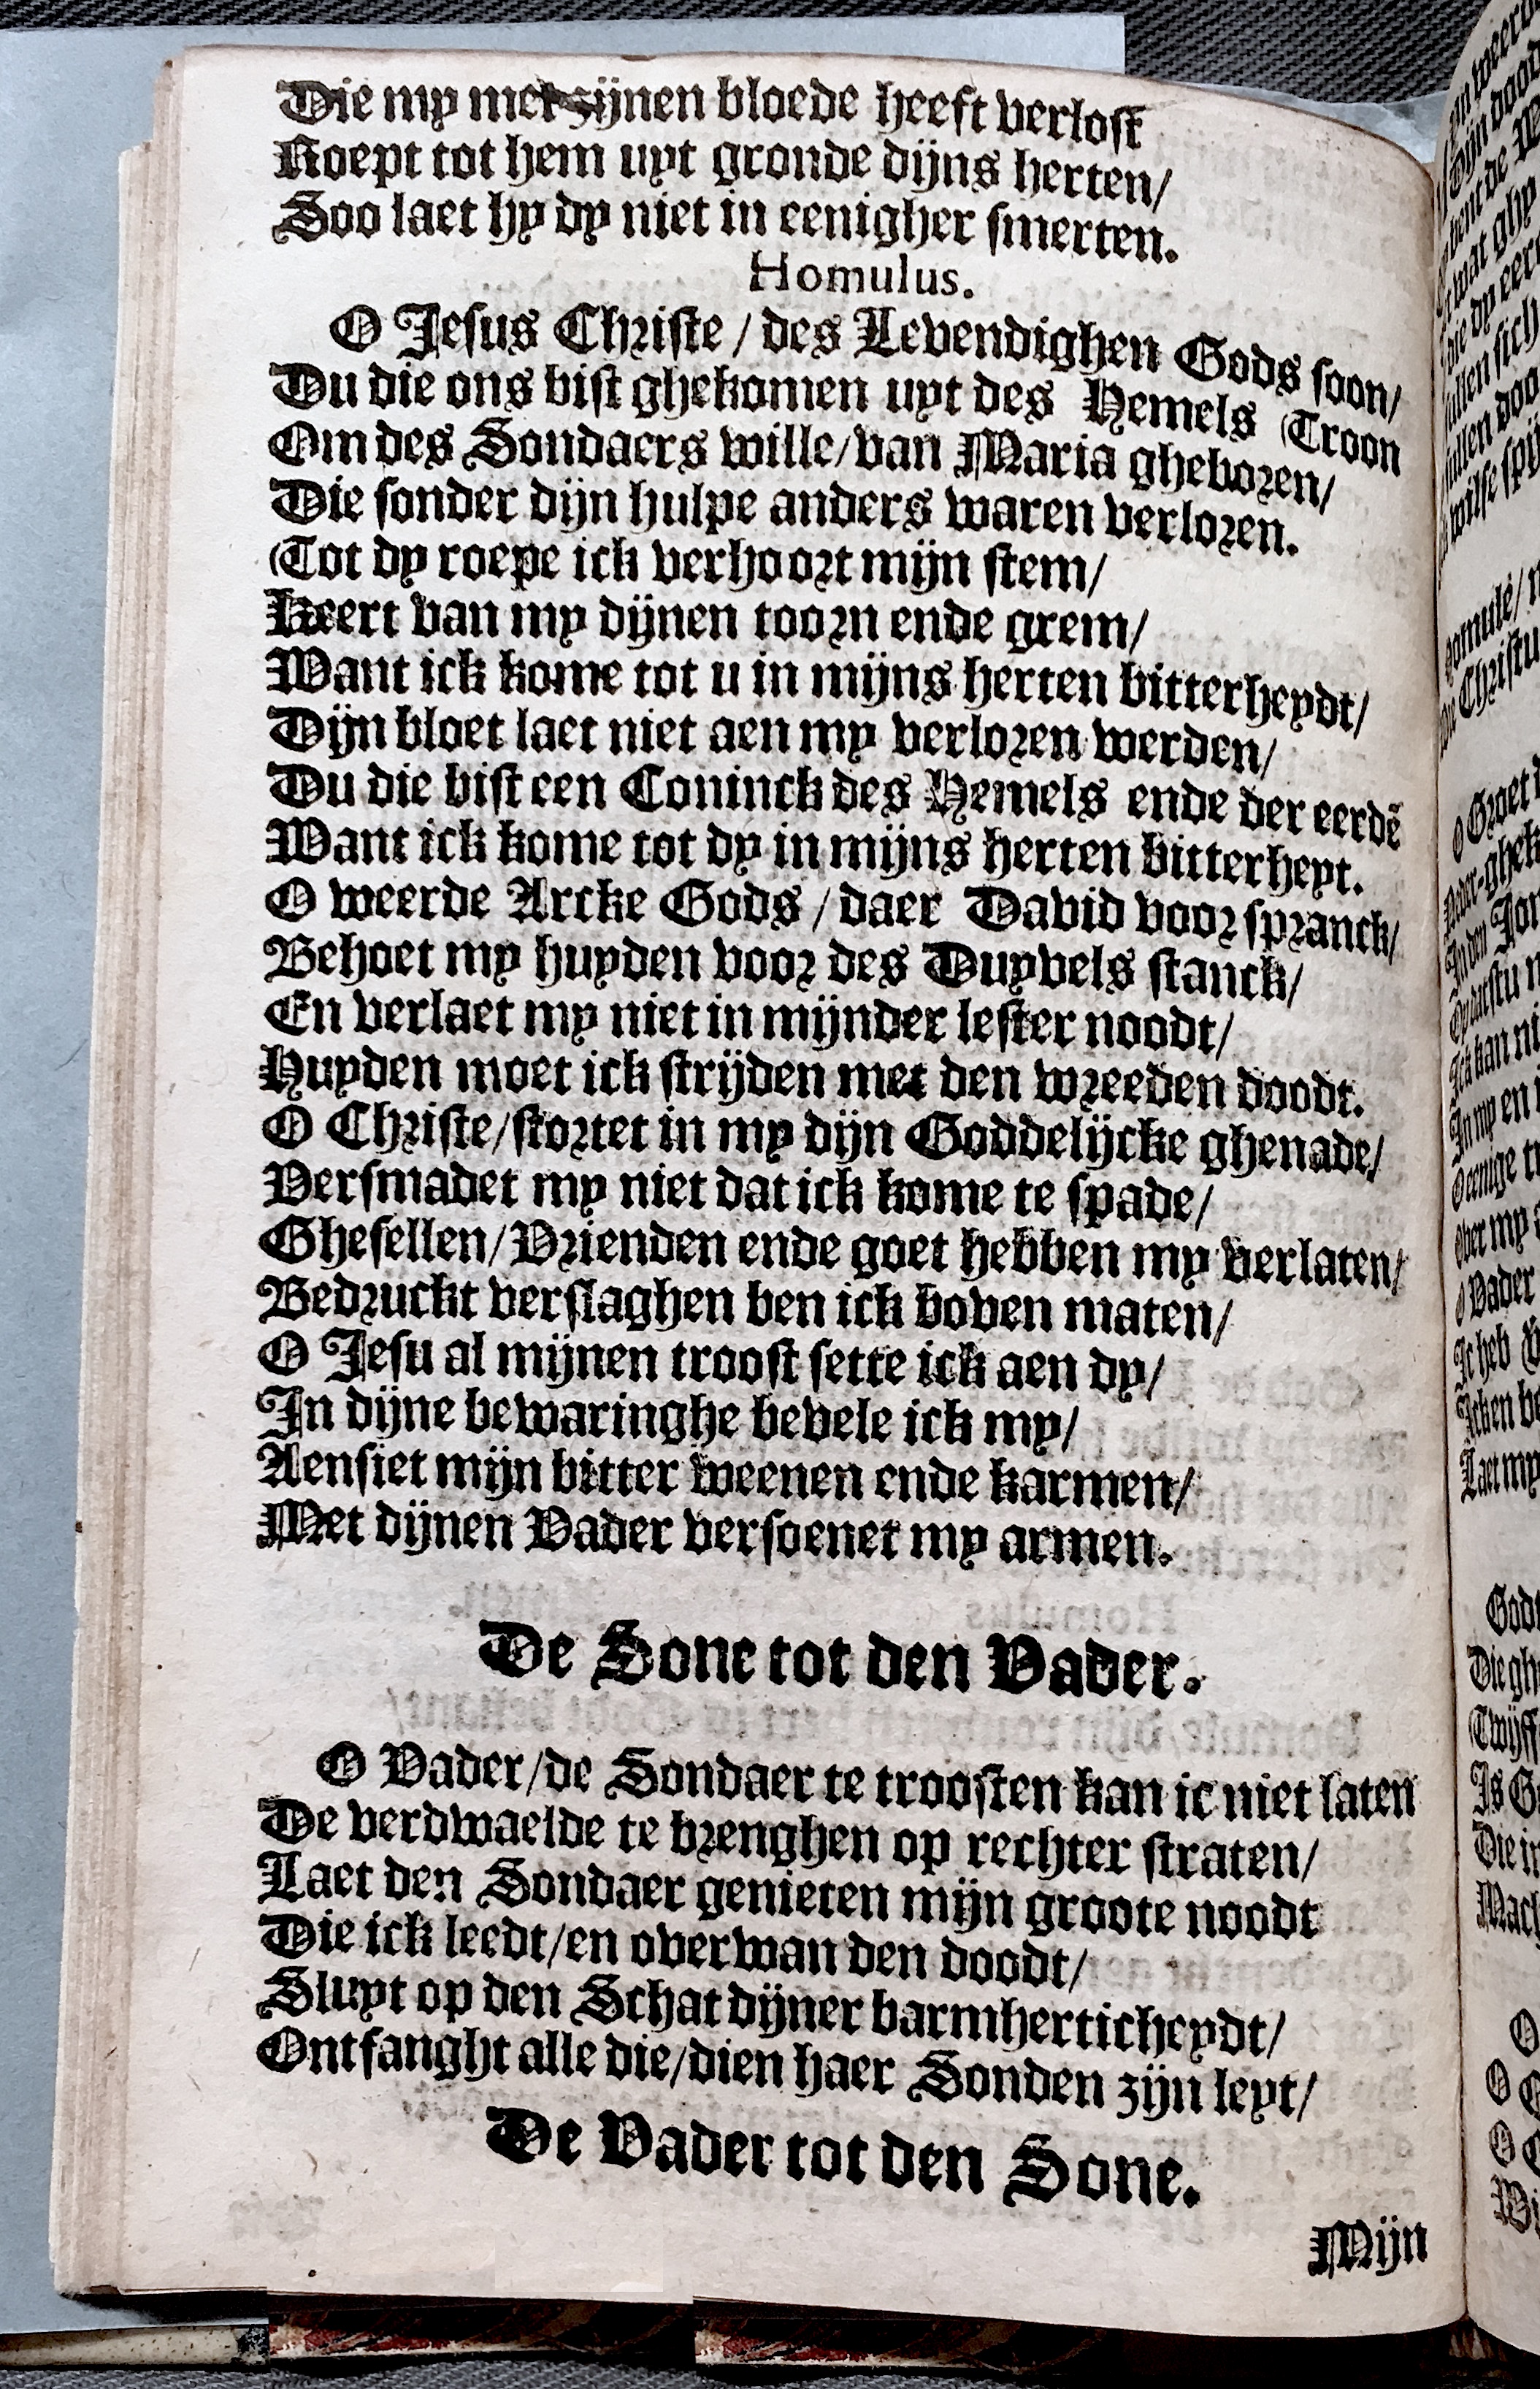 Die my met sijnen bloede heeft verlost
Roept tot hem uyt gronde dijns herten/
Soo laet hy dy niet in eenigher smerten.
Homulus.
O Jesus Christe / des Levendighen Gods soon/
Du die ons bist ghekomen uyt des Hemels Troon
Om des Sondaers wille/van Maria gheboren/
Die sonder dijn hulpe anders waren verloren.
Tot dy roepe ick verhoort mijn stem/
Keert van my dijnen toorn ende grem/
Want ick kome tot u in mijns herten bitterheydt/
Dijn bloet laet niet aen my verloren werden/
Du die bist een Coninck des Hemels ende der eerdẽ
Want ick kome tot dy in mijns herten bitterheyt.
O weerde Arcke Gods / daer David voor spranck/
Behoet my huyden voor des Duyvels stanck/
En verlaet my niet in mijnder lester noodt/
Huyden moet ick strijden met den wreeden doodt.
O Christe/stortet in my dijn Goddelijcke ghenade/
Versmadet my niet dat ick kome te spade/
Ghesellen/Vrienden ende goet hebben my verlaten/
Bedruckt verslaghen ben ick boven maten/
O Jesu al mijnen troost sette ick aen dy/
In dijne bewaringhe bevele ick my/
Aensiet mijn bitter weenen ende karmen/
Met dijnen Vader versoenet my armen.
De Sone tot den Vader.
O Vader/de Sondaer te troosten kan ic niet laten
De verdwaelde te brenghen op rechter straten/
Laet den Sondaer genieten mijn groote noodt
Die ick leedt/en overwan den doodt/
Sluyt op den Schat dijner barmherticheydt/
Ontfanght alle die/dien haer Sonden zijn leyt/
De Vader tot den Sone.
Mijn